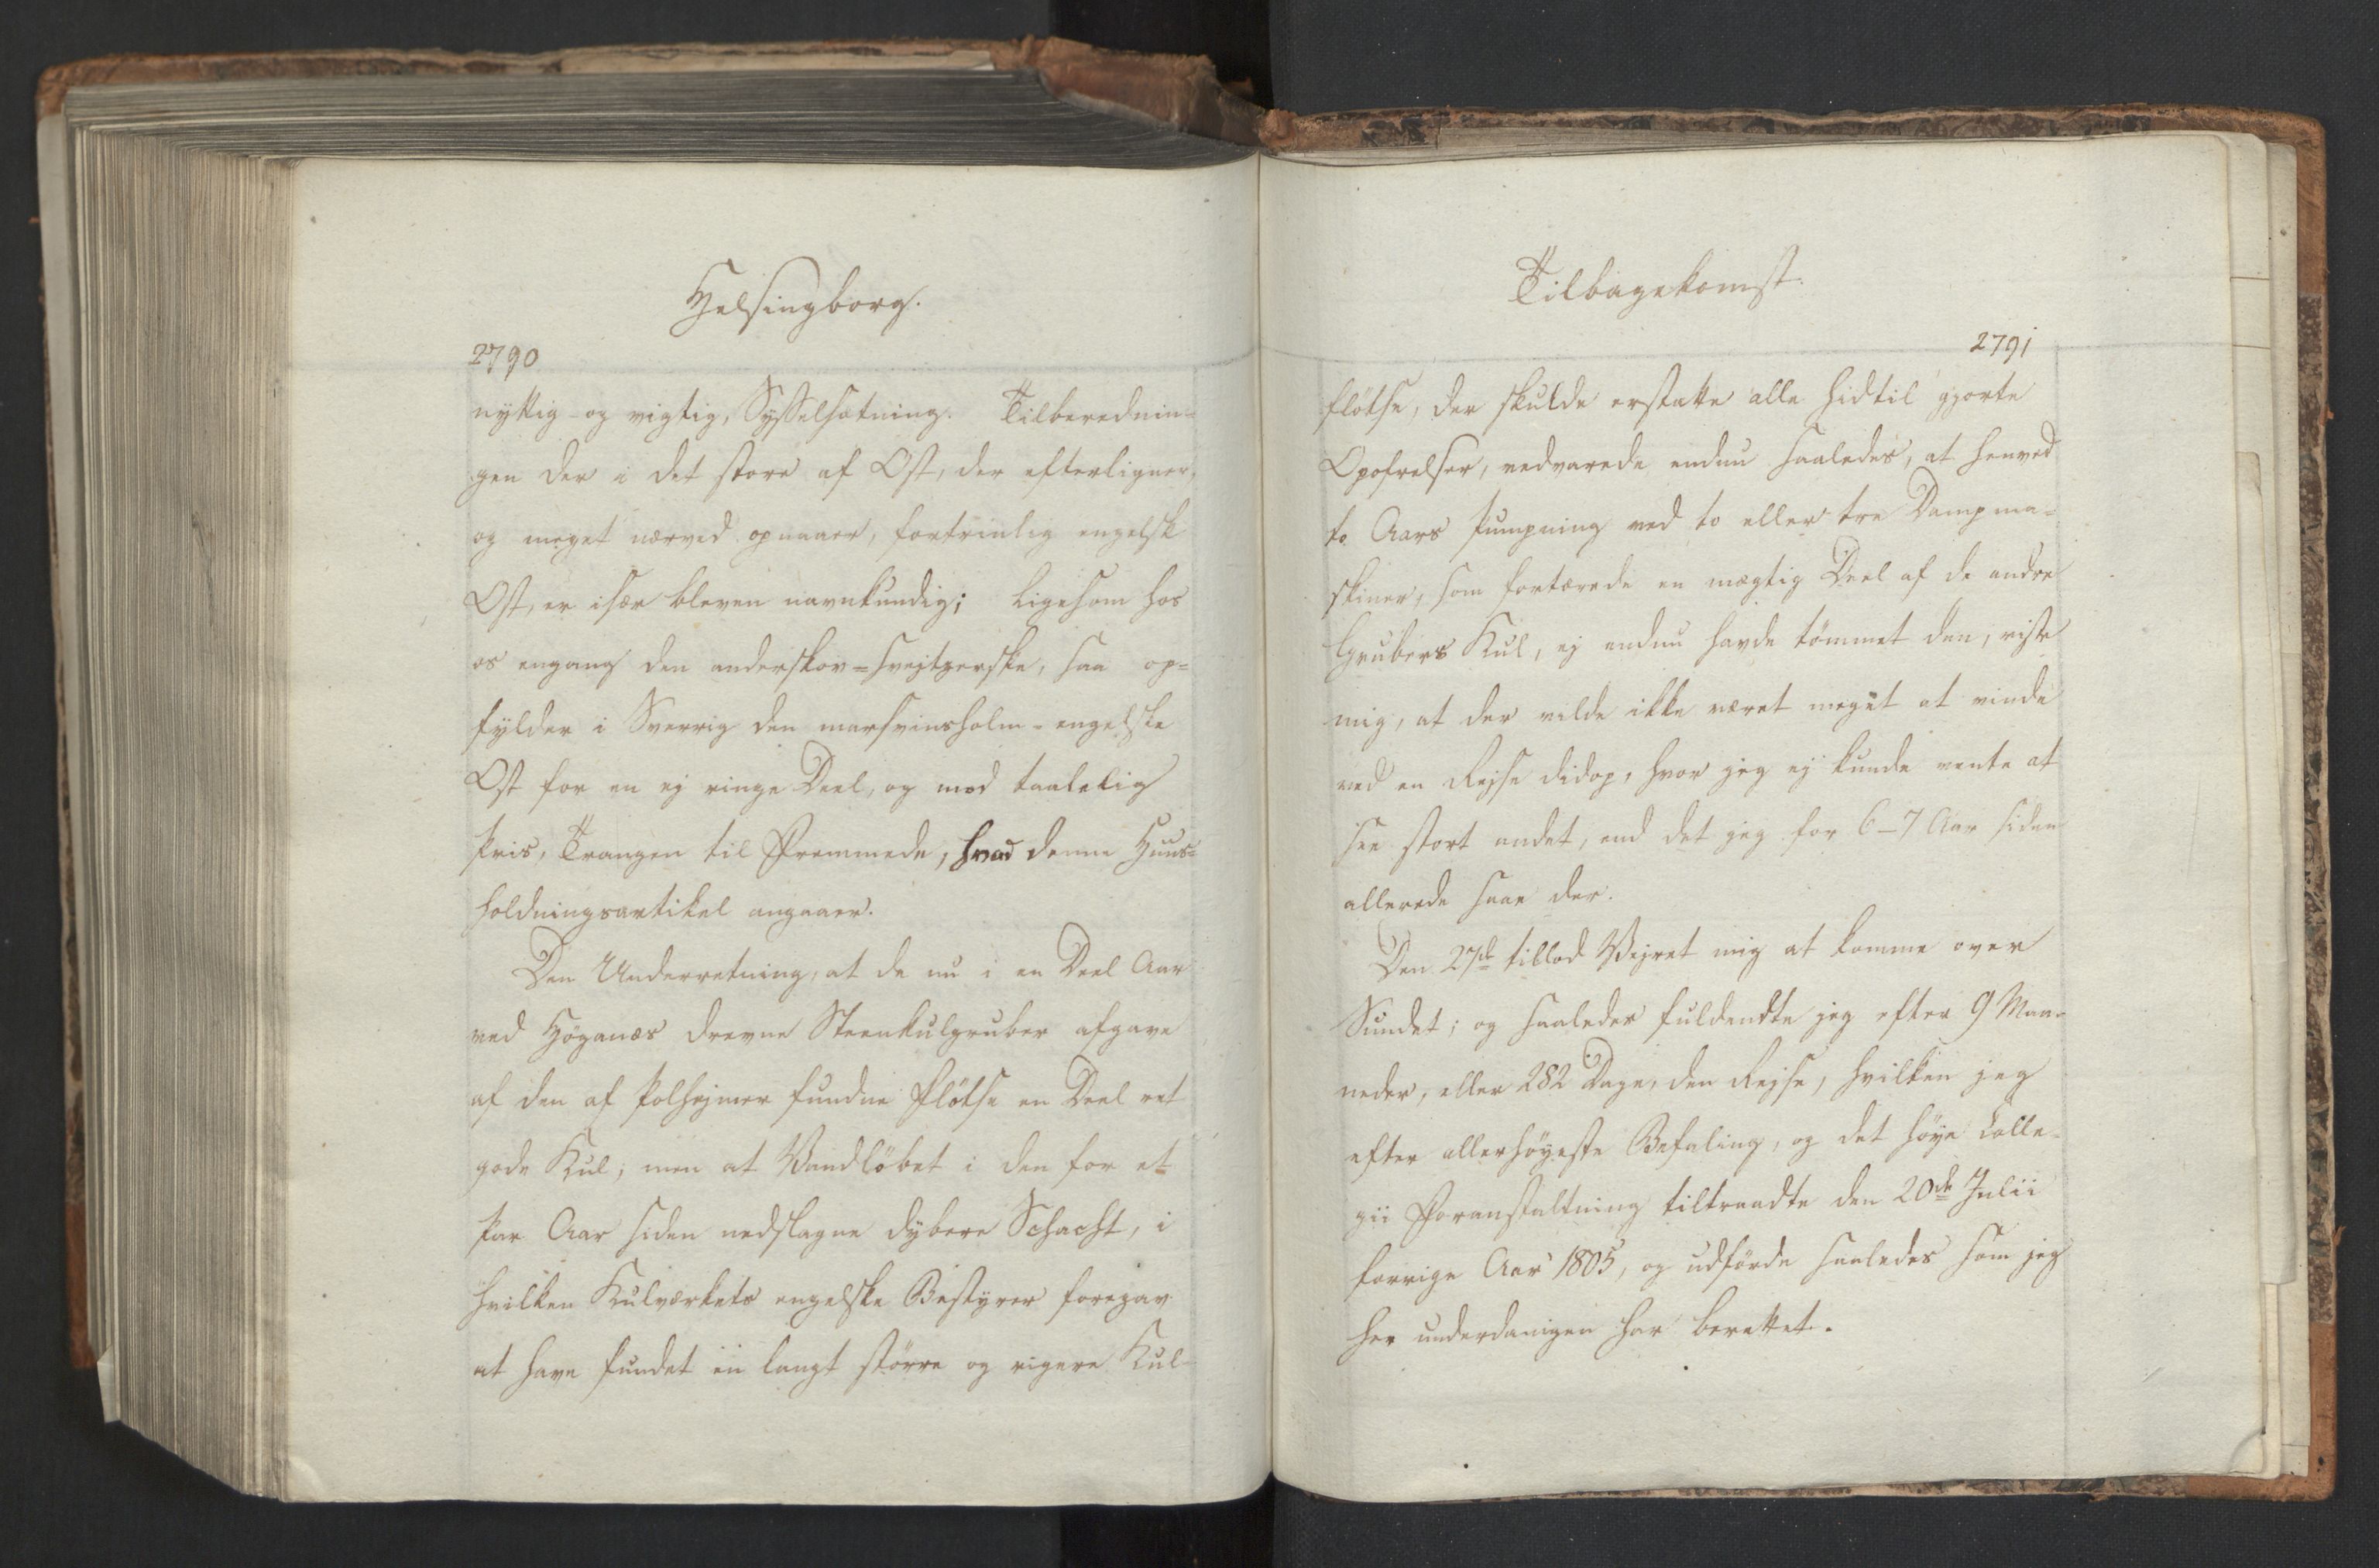 Helsingborg.
2790
nyttig- og vigtig, Sysselsætning. Tilberednin-
gen der i det store af Ost, der efterligner,
og meget nærved opnaaer, fortrinlig engelsk
Ost, er især bleven navnkundig; ligesom hos
os engang den anderskov-svejtzerske, saa op=
fylder i Sverrig den marsvinsholm-engelske
Ost for en ej ringe Deel, og mod taalelig
Pris, Trangen til Fremmede, hvad denne Huus=
holdningsartikel angaaer.
Den Underretning, at de nu i en Deel Aar
ved Höganæs drevne Steenkulgruber afgave
af den af Polhejmer fundne Flötse en Deel ret
gode Kul; men at Vandlöbet i den for et
Par Aar siden nedslagne dybere Schacht, i
hvilken Kulværkets engelske Bestyrer foregav
at have fundet en langt större og rigere Kul-
Tilbagekomst.
2791
flötse, der skulde erstatte alle hidtil gjorte
Opofrelser, vedvarede endnu saaledes, at henved
to Aars Pumpning ved to eller tre Dampma=
skiner, som fortærede en mægtig Deel af de andre
Grubers Kul, ej endnu havde tömmet den, viste
mig, at der vilde ikke været meget at vinde
ved en Rejse didop, hvor jeg ej kunde vente at
see stort andet, end det jeg for 6-7 Aar siden
allerede saae der.
Den 27de tillod Vejret mig at komme over
Sundet; og saaledes fuldendte jeg efter 9 Maa=
neder, eller 282 Dage, den Rejse, hvilken jeg
efter allerhöyeste Befaling, og det höye Colle-
gii Foranstaltning tiltraadte den 20de Julii
forrige Aar 1805, og udförde saaledes som jeg
her underdanigen har berettet.